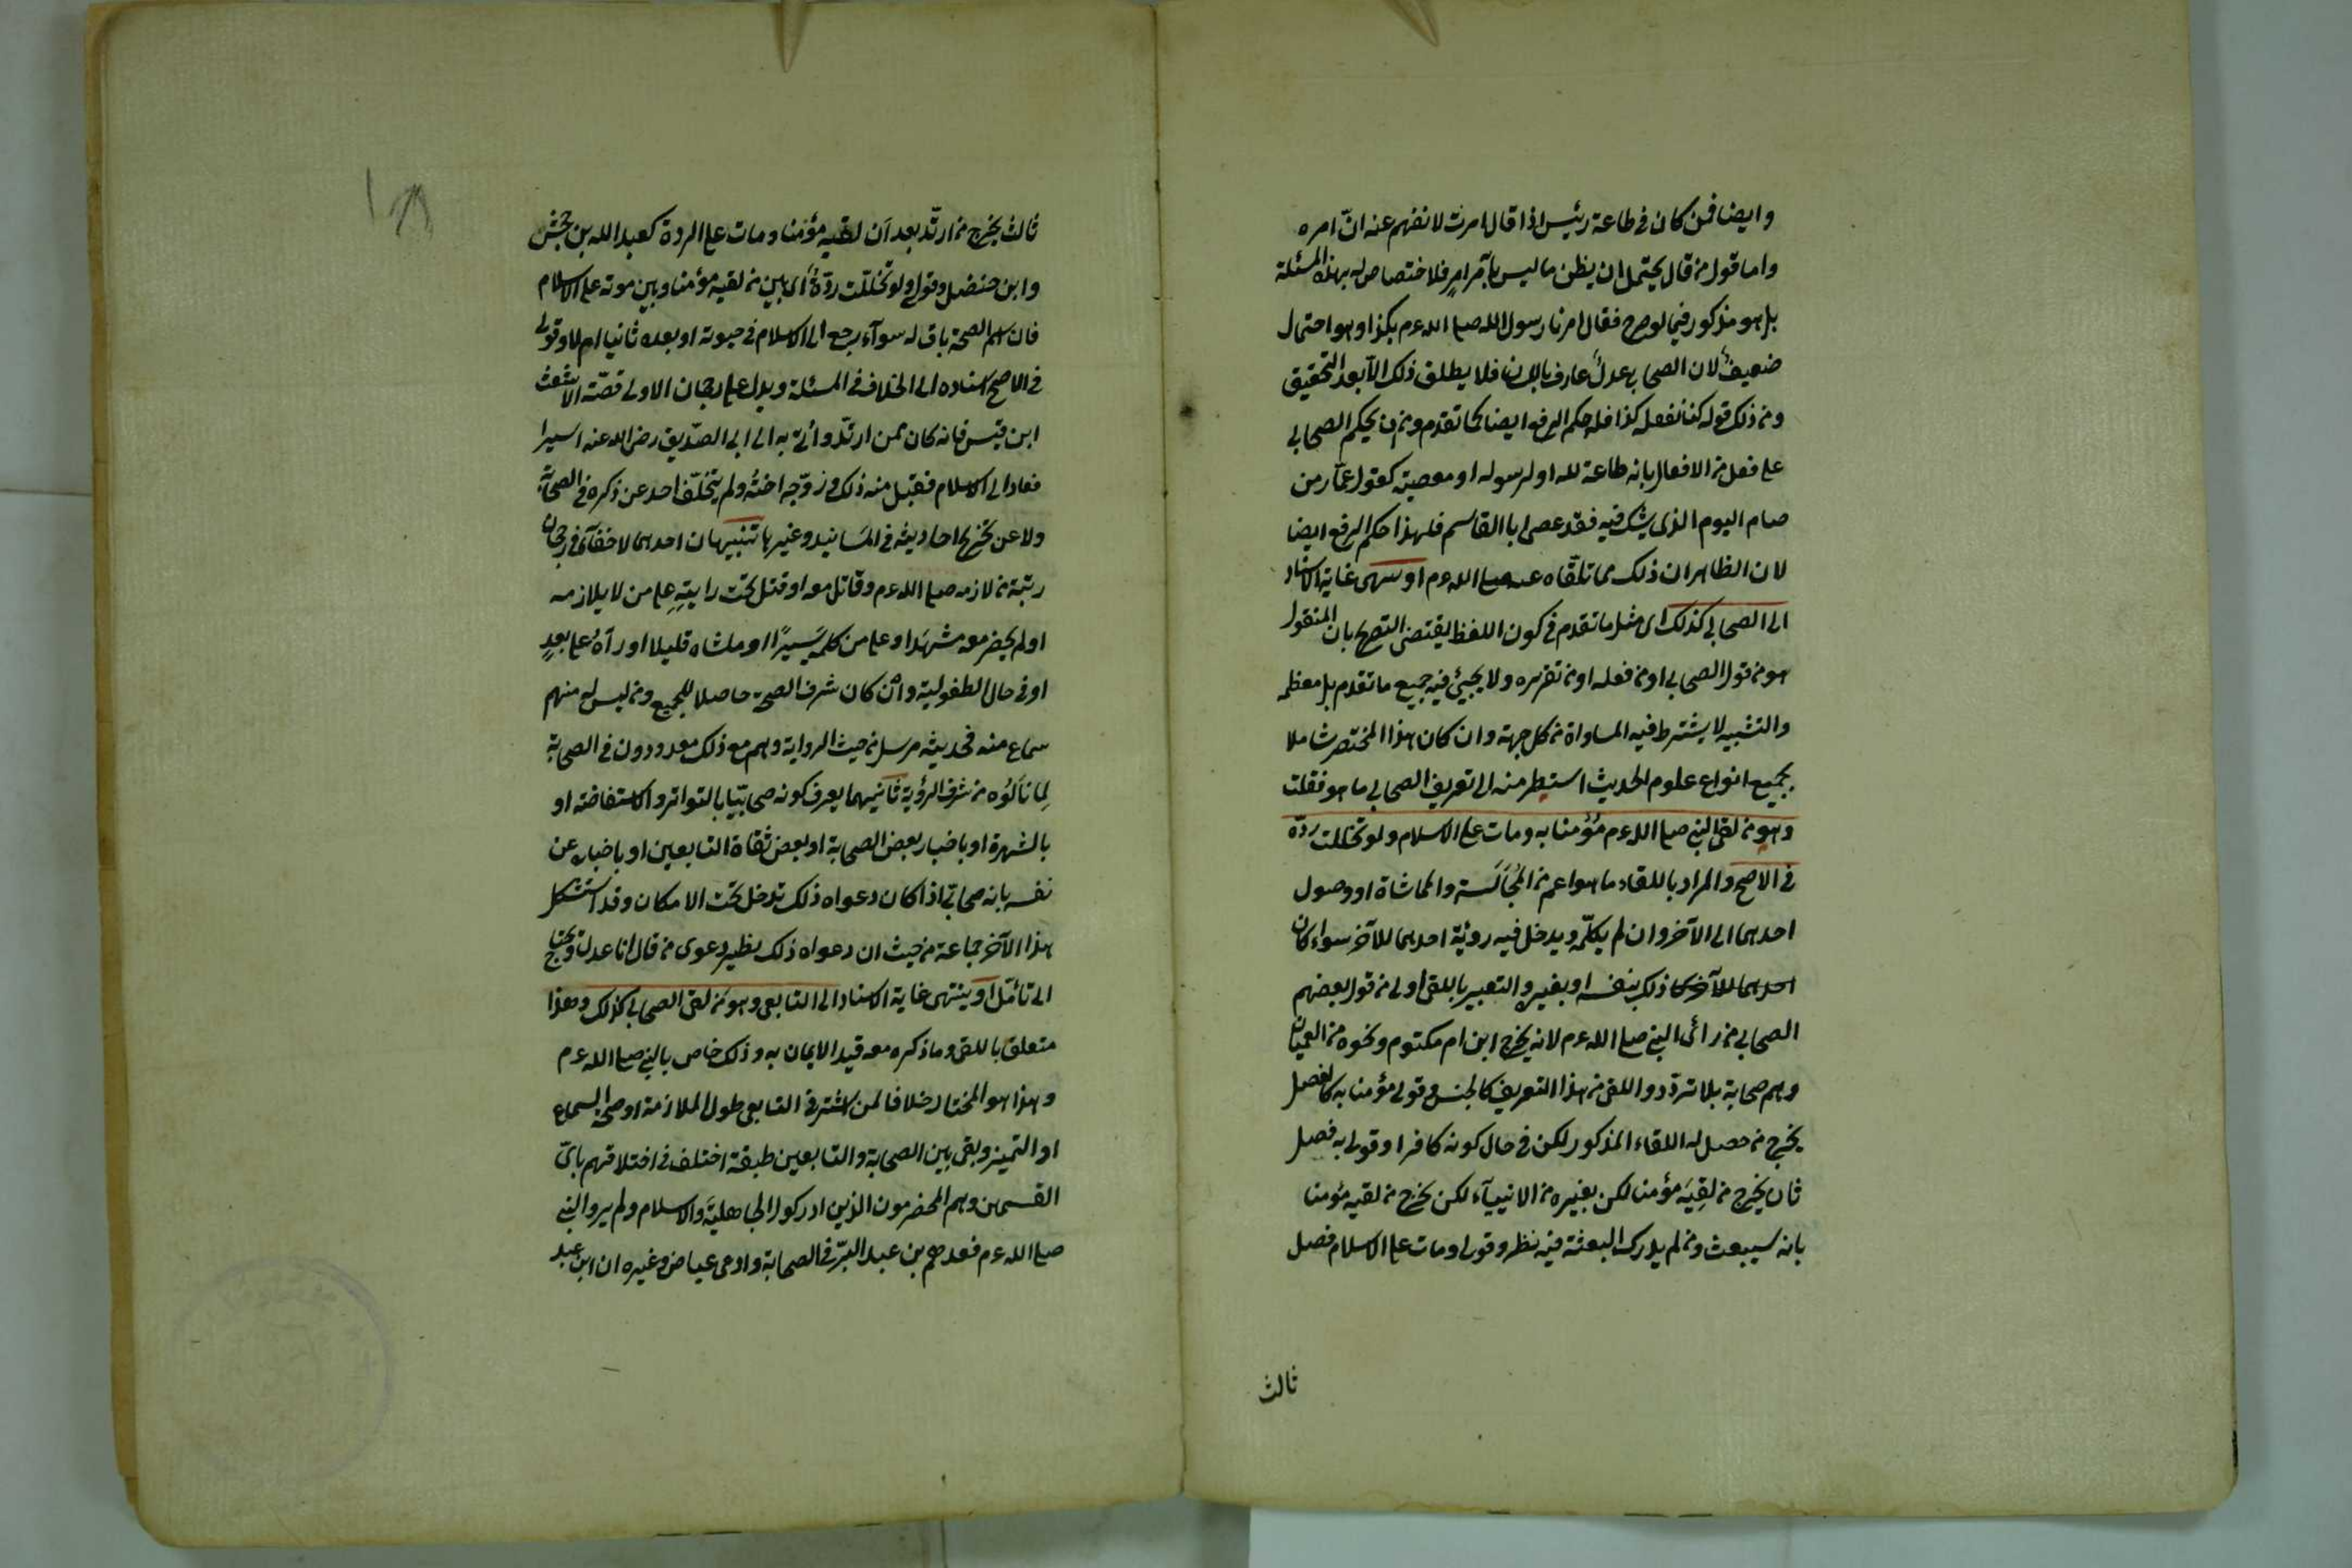 وايضا فمن كان في طاعة رئيس اذا قال امرت لا نفهم عنه ان آمره
واما قول من قال يحتمل ان يظن ما ليس بامر امرٍ فلا اختصاص له بهذه المسئلة
بل هو مذكور فيما لو صرح فقال امرنا رسول الله صلى الله عم بكذا وهو احتمال
ضعيفٌ لان الصحابي عدلٌ عارف باللسان فلا يطلق ذلك الا بعد التحقيق
ومن ذلك قوله كنا نفعل كذا فله حكم الرفع ايضا كما تقدم ومن ان يحكم الصحابي
على فعل من الافعال بانه طاعة لله او لرسوله او معصية كقول عمّار من
صام اليوم الذي يشك فيه فقد عصى ابا القاسم فلهذا حكم الرفع ايضا
لان الظاهر ان ذلك مما تلقاه عنه صلى الله عم او ينتهى غاية الاسناد
الى الصحابي كذلك اى مثل ما تقدم في كون اللفظ يقتضى التصريح بان المنقول
هو من قول الصحابي او من فعله او من تقريره ولا يجيئ فيه جميع ما تقدم بل معظمه
والتشبيه لا يشترط فيه المساواة من كل جهة وان كان هذا المختصر شاملا
بجميع انواع علوم الحديث استطر منه الى تعريف الصحابي ما هو فقلت
وهو من لقى النبي صلى الله عم مؤمنا به ومات على الاسلام ولو تخللت ردّة
في الاصح والمراد باللقاء ما هو اعم من المجالَسَة والماشاة او وصول
احدهما الى الآخر وان لم يكلّمه ويدخل فيه رؤية احدهما للآخر سواء كان
احدهما للآخر كان ذلك بنفسه او بغيره والتعبير باللقى اولى من قول بعضهم
الصحابي من رأى النبي صلى الله عم لانه يخرج ابن ام مكتوم ونحوه من العميان
وهم صحابة بلا تردّد واللقى من هذا التعريف كالجنس وقولى مؤمنا به كالفصل
يخرج من حصل له اللقاء المذكور لكن في حال كونه كافرا وقولى به فصل
ثان يخرج من لقِيَه مؤمنا لكن بغيره من الانبيآء لكن يخرج من لقيه مؤمنا
بانه سيبعث ومن لم يدرك البعثة فيه نظر وقولى ومات على الاسلام فصل
ثالث
ثالث يخرج من ارتدّ بعد اَن لقيه مؤمنا ومات على الردة كعبد الله بن جحش
وابن حنضل وقولى ولو تخللت ردّةٌ أى بين من لقيه مؤمنا وبين موته على الاسلام
فان اسم الصحبة باق له سوآء رجع الى الاسلام في حيوته او بعده ثانيا ام لا وقولى
في الاصح اشاره الى الخلاف في المسئلة ويدل على رجحان الاولى قصّة الاشعث
ابن قيس فانه كان ممن ارتدّ وأتى به الى ابى الصّديق رضى الله عنه اسيرا
فعاد الى الاسلام فقبل منه ذلك وزوّجه اختُه ولم يتخلّف احد عن ذكره في الصحابة
ولا عن تخريج احاديثه في المسَانيد وغيرها تنبيهان احدهما لا خفآء في رجحان
رتبة من لازمه صلى الله عم وقاتل معه او قتل تحت رايتِهِ على من لا يلازمه
او لم يحضر معه مشهدا وعلى من كلمه يَسيرًا او ماشاه قليلا او رآهُ على بعدٍ
او في حال الطفولية وان كان شرف الصحبة حاصلا للجميع ومن ليس له منهم
سماع منه فحديثه مرسل من حيث الرواية وهم مع ذلك معدودون في الصحابة
لِما نالوُه من شرف الرؤية ثانيهما يعرف كونه صحابيّا بالتواتر والاستفاضة او
بالشهرة او باخبار بعض الصحابة او بعض ثقاة التابعين او باخباره عن
نفسه بانه صحابىّ اذا كان دعواه ذلك تدخل تحت الامكان وقد استشكل
هذا الآخر جماعة من حيث ان دعواه ذلك نظير دعوى من قال انا عدل ويحتاج
الى تأمّل او ينتهى غاية الاسناد الى التابعي وهو من لقى الصحابي كذلك وهذا
متعلق باللقى وما ذكره معه قيد الايمان به وذلك خاص بالنبي صلى الله عم
وهذا هو المختار خلافا لمن اشترط في التابعي طول الملازمة او صحة السماع
او التميز وبقى بين الصحابة والتابعين طبقة اختلف في اختلاقهم باىّ
القسمين وهم المخضرمون الذين ادركوا الجاهليَّة والاسلام ولم يروا النبي
صلى الله عم فعدهم بن عبد البرّ في الصحابة وادعى عياض وغيره ان ابن عبد